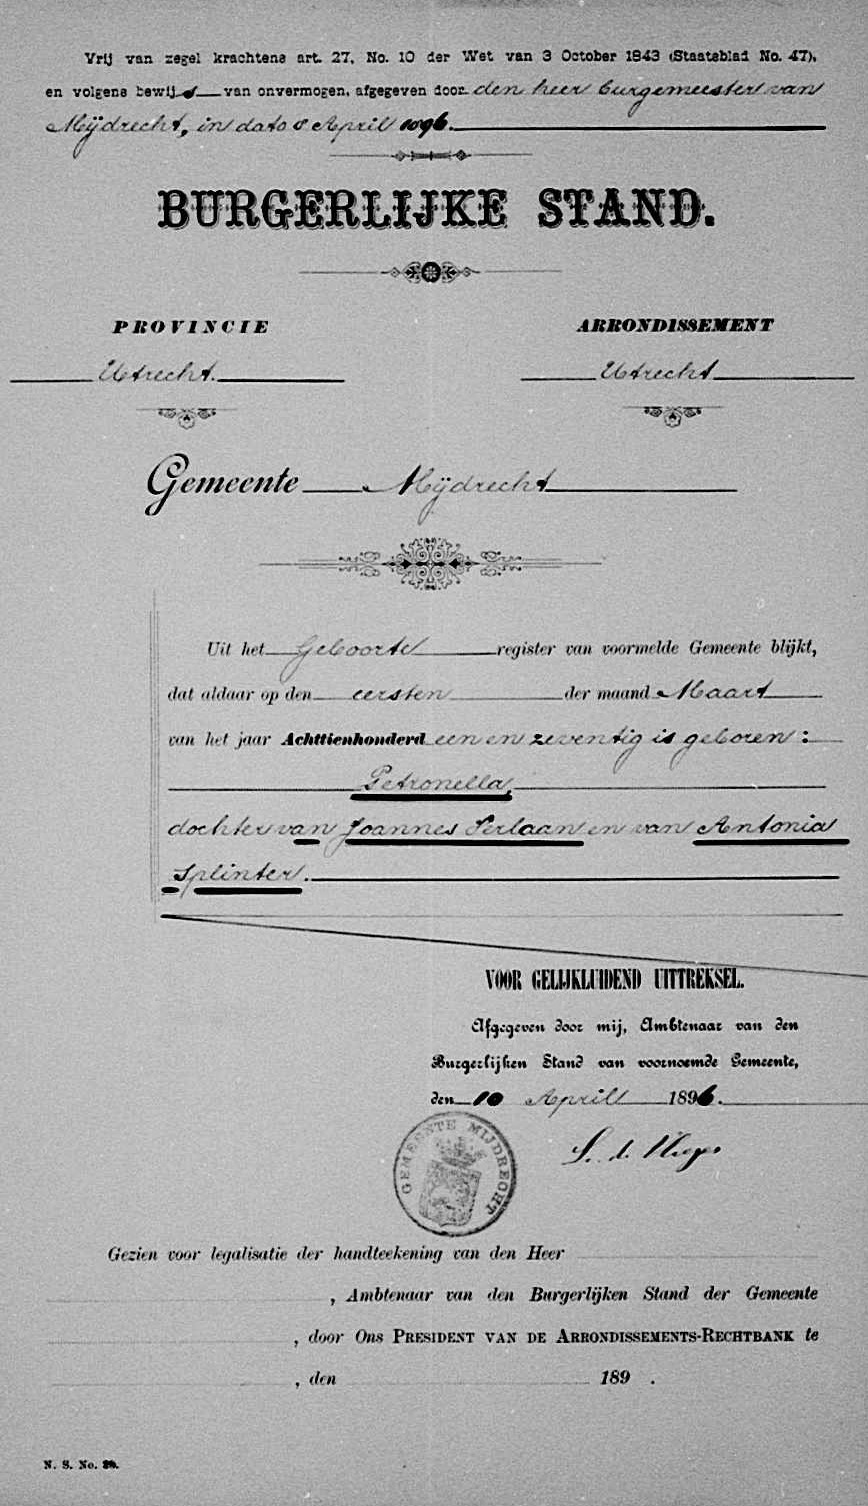 Vrij van zegel krachtens art. 27, No. 10 der Wet van 3 October 1843 (Staatsblad No. 47),
en volgens bewijs van onvermogen, afgegeven door den heer burgemeester van
Mijdrecht, in dato 8 April 1896.
BURGERLIJKE STAND.
PROVINCIE
ARRONDISSEMENT
Utrecht.
Utrecht
Gemeente Mijdrecht
Uit het Geboorte register van voormelde Gemeente blijkt,
dat aldaar op den eersten der maand Maart
van het jaar Achttienhonderd een en zeventig is geboren:
Petronella,
dochter van Joannes Serlaan en van Antonia
Splinter.
VOOR GELIJKLUIDEND UITTREKSEL.
Afgegeven door mij, Ambtenaar van den
Burgerlijken Stand van voornoemde Gemeente,
den 10 April 1896.
GEMEENTE MIJDRECHT
Gezien voor legalisatie der handteekening van den Heer
, Ambtenaar van den Burgerlijken Stand der Gemeente
, door Ons PRESIDENT VAN DE ARRONDISSEMENTS-RECHTBANK te
, den 189 .
N. S. No. 20.